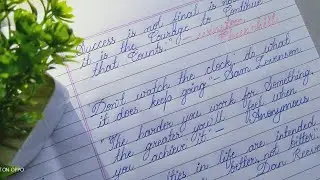 Success is not final is not
it is the Courage to Continue
that Counts." - Winston
Churchill
Don't watch the clock; do what
it does. keep going - Sam Levenson
"The harder you work for Something,
the greater you'll feel when
you achieve it." - Anonymous
in life are intended
better, not bitter.
Dan Reeve
ON OPPO